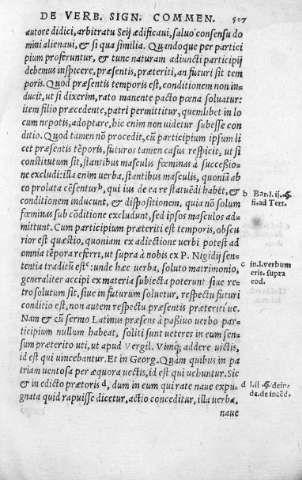 DE VERB. SIGN. COMMEN. 507
autore didici, arbitratu Seij ædificaui, saluo consensu do
mini alienaui, & si qua similia. Quandoque per partici
pium proferuntur, & tunc naturam adiuncti participij
debemus inspicere, præsentis, præteriti, an futuri sit tem
poris. Quod præsentis temporis est, conditionem non in-
ducit, ut si dixerim, rato manente pacto pœna soluatur:
item filio præcedente, patri permittitur, quemlibet in lo
cum nepotis, adoptare, hic enim non uidetur subesse con
ditio. Quod tamen nõ procedit, cũ participium ipsum li
cet præsentis tẽporis, futuros tamen casus respicit, ut si
constitutum sit, stantibus masculis fœminas à successio-
ne excludi: illa enim uerba, stantibus masculis, quoniã ab
eo prolata cẽsentur b, qui ius de ea re statuẽdi habẽt, &
conditionem inducunt, & dispositionem, quia nõ solum
fœminas sub cõditione excludunt, sed ipsos masculos ad
mittunt. Cum participium præteriti est temporis, obscu
rior est quæstio, quoniam ex adiectione uerbi potest ad
omnia tẽpora referri, ut supra à nobis ex P. Nigidij sen-
tentia traditũ est c: unde hæc uerba, soluto matrimonio,
generaliter accipi ex materia subiecta poterunt siue re-
tro solutum sit, siue in futurum soluetur, respectu futuri
conditio est, non autem respectu præsentis præteriti ue.
Nam & cũ sermo Latinus præsens à paßiuo uerbo par-
ticipium nullum habeat, soliti sunt ueteres in eum sen-
sum præterito uti, ut apud Vergil. Vimq; addere uictis,
id est qui uincebantur. Et in Georg. Quàm quibus in pa-
triam uentosa per æquora uectis, id est qui uehuntur. Sic
& in edicto prætoris d, dum in eum qui rate naue expu-
gnata quid rapuisse dicetur, actio conceditur, illa uerba,
naue
b Bar. l. ij. §.
si ad Tert.
c in l. uerbum
erit. supra
eod.
d l. ij. § deinde.
de incẽd.